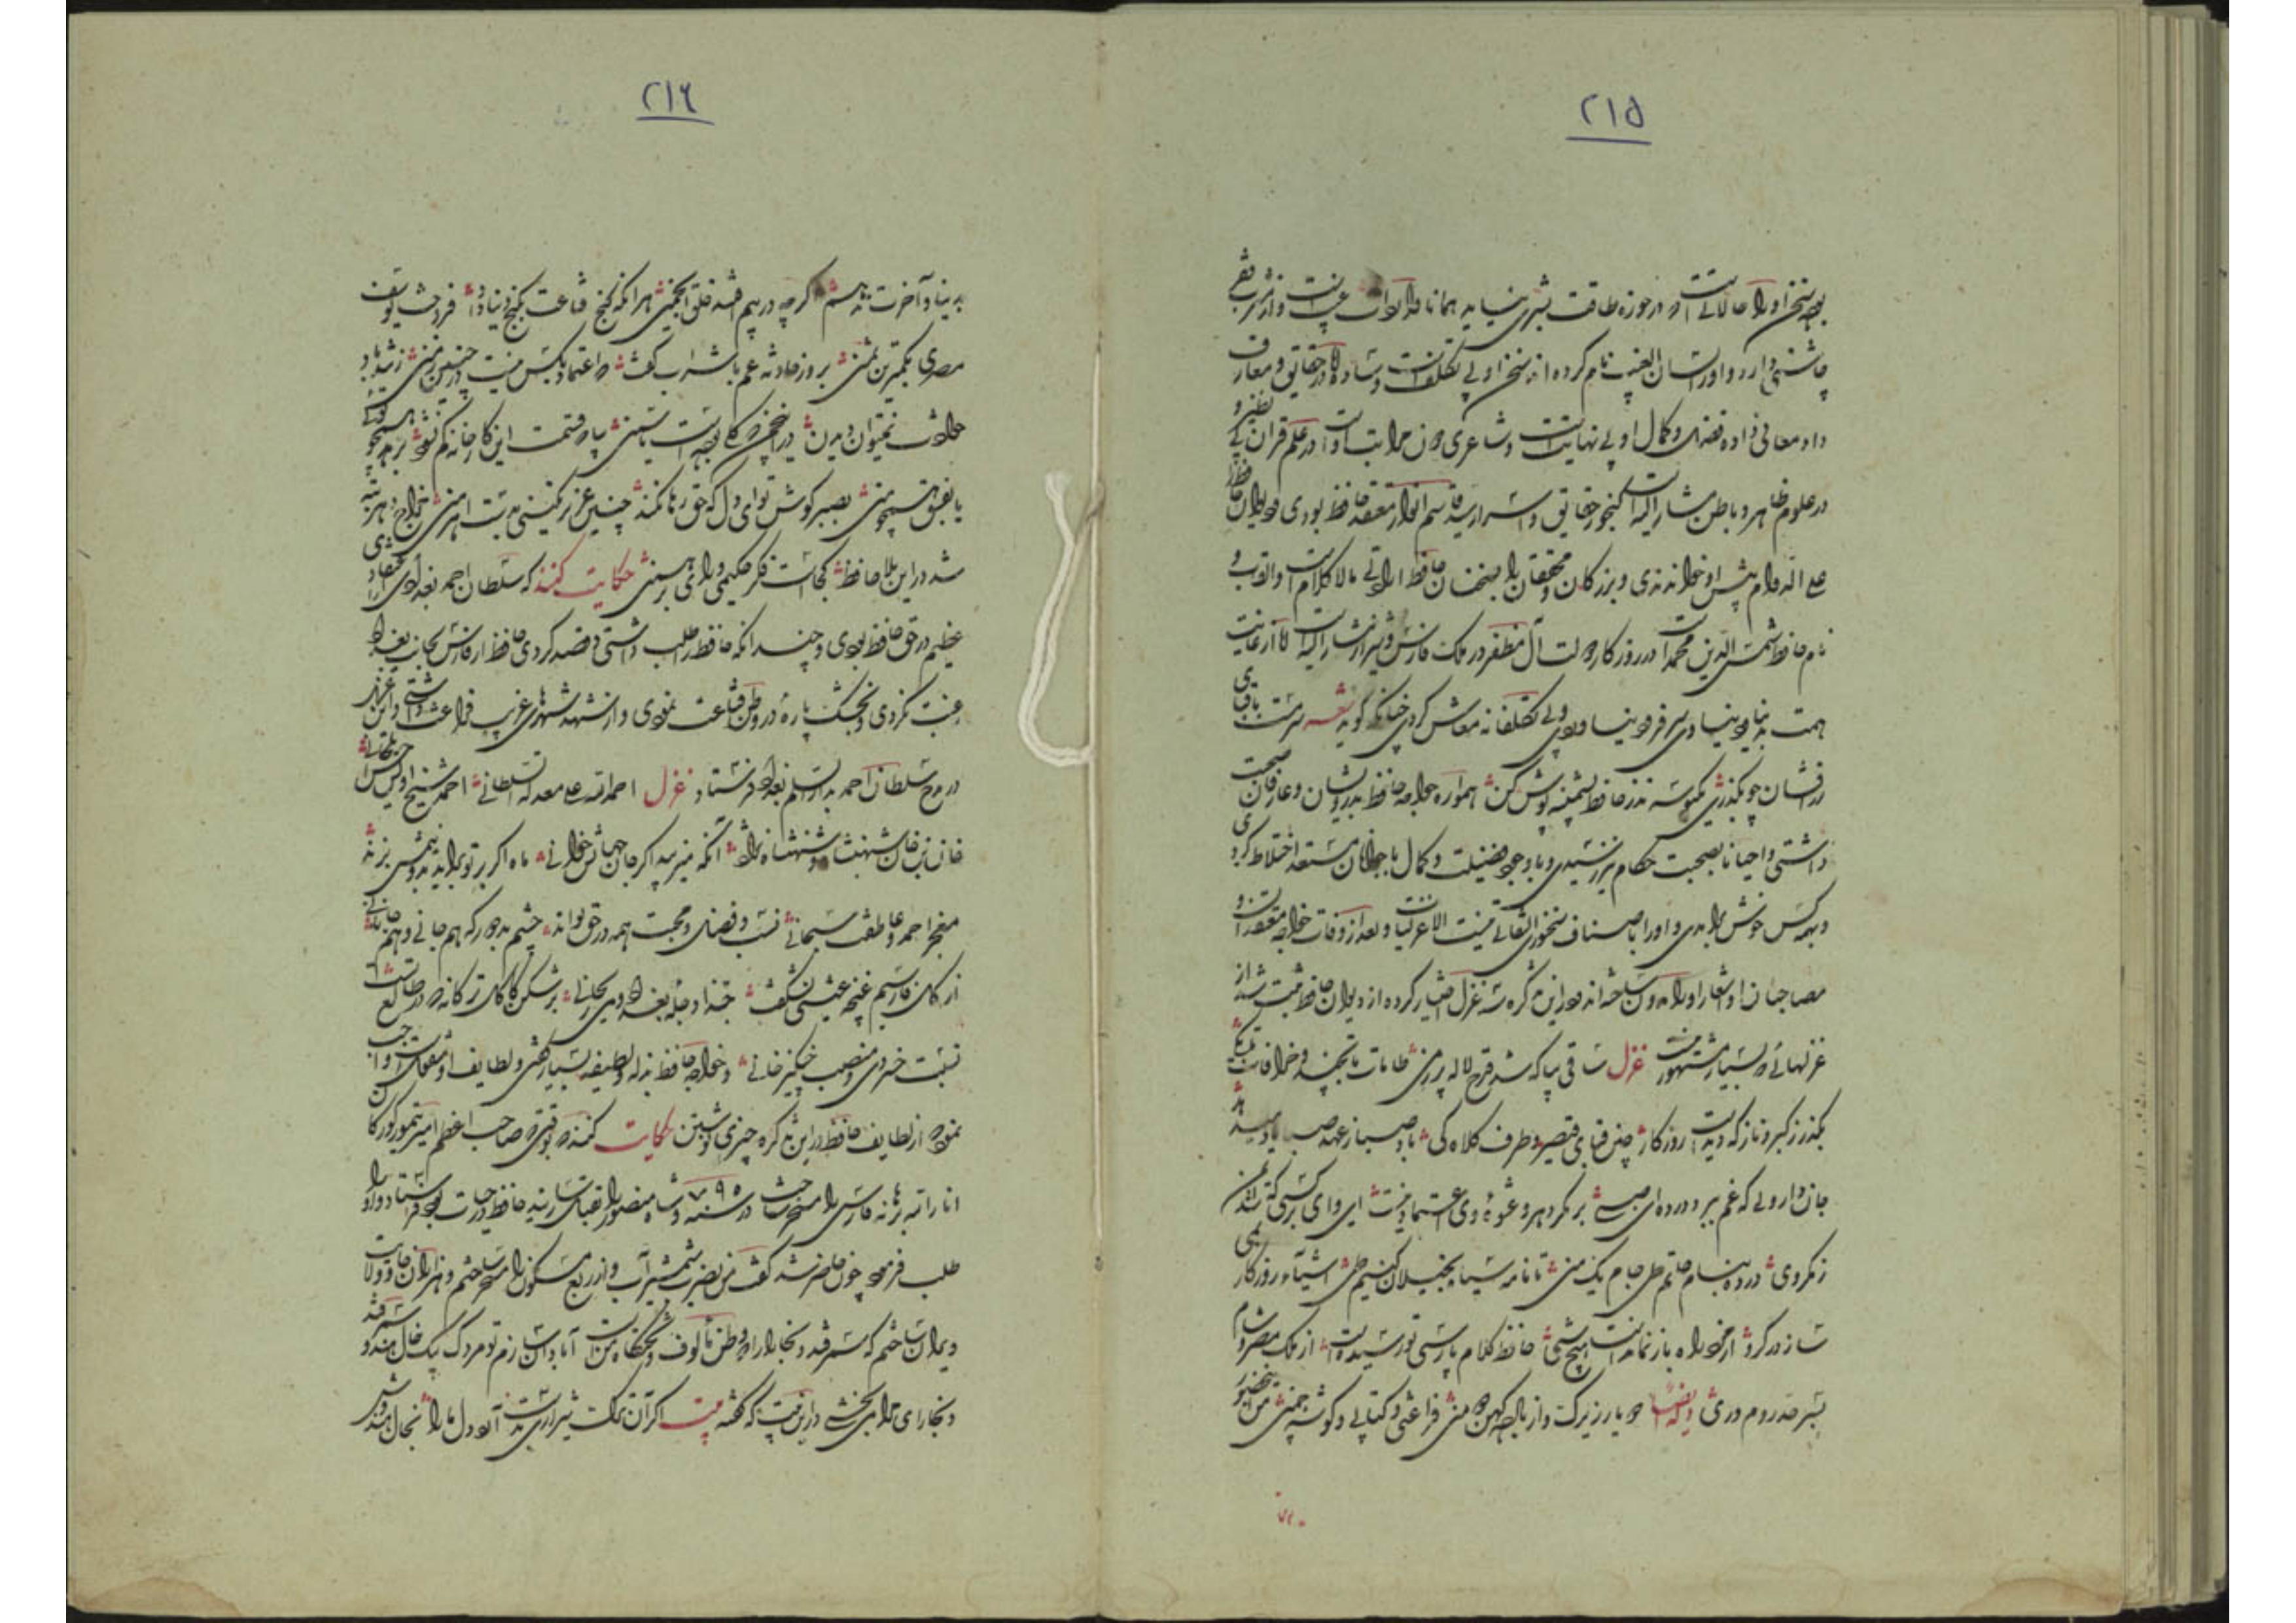 ٢١٥
بود سخن او را حالاتیست که در حوزه طاقت بشری نیاید همانا واردات غیب است و از مشرب فقر
چاشنی دارد و او را لسان الغیب نام کرده اند سخن او بی تکلفست و ساده اما در حقایق و معارف
داد معانی داده فضل و کمال او بی نهایت است و شاعری دون مراتب اوست در علم قرآن بی نظیر و
در علوم ظاهر و باطن مشار الیه گنجور حقایق و اسرار سید قاسم انوار معتقد حافظ بودی و دیوان حافظ
علی الدوام پیش او خواندندی و بزرگان و محققان را بسخنان حافظ ارادتی مالا کلام است و القاب و
نام حافظ شمس الدین محمد است در روزگار دولت آل مظفر در ملک فارس و شیراز مشار الیه اما از غایت
همت بدنیا دنیا وی سر فرو نیاوردی و بی تکلفانه معاش کردی چنانکه گوید شعر سرمست باقبای
زرافشان چو بگذری یکبوسه نذر حافظ پشمینه پوش کن همواره خواجه حافظ بدرویشان و عارفان صحبت
داشتی و احیانا بصحبت حکام نیز رسیدی و با وجود فضیلت و کمال با جوانان مستعد اختلاط کردی
و بهمه کس خوش برآمدی و او را باصناف سخنوری التفاتی نیست الا غزلیات و بعد از وفات خواجه معتقدان و
مصاحبان او اشعار او را مدون ساخته اند و درین تذکره سه غزل اختیار کرده از دیوان حافظ ثبت شد از
غزلهائی که بسیار مشهور نیست غزل ساقی بیا که شد قدح لاله پر ز می طامات تا بچند و خرافات تا بکی
بگذر ز کبر و ناز که دیدست روزگار چین قبای قیصر و طرف کلاه کی باد صبا ز عهد صبی یاد میدهد
جان داروئی که غم ببرد درده ای صبی بر مکر دهر و عشوه وی اعتماد نیست ای وای بر کسی که شد ایمن
ز مکر وی درده بنام حاتم طی جام یک منی تا نامه سیاه بخیلان کنیم طی اشیاء روزگار بمی
ساز در گرو از خود راه باز نماندست هیچ شی حافظ کلام پارسی تو رسیدست از ملک مصر و شام
بسر حد روم و ری وله ایضا دو یار زیرک و از باده کهن دو منی فراغتی و کتابی و گوشه چمنی من این حضور
٢١٦
بدنیا و آخرت ندهم اگر چه در پیم افتند خلق انجمنی هر آنکه کنج قناعت بگنج دنیا داد فروخت یوسف
مصری بکمترین ثمنی بروز حادثه غم با شراب باید گفت که اعتماد بکس نیست در چنین زمنی ز تندباد
حوادث نمیتوان دیدن درین چمن که گلی بوده است یا سمنی بیا که قسمت این کارخانه کم نشود بزهد همچو توئی
یا بفسق همچو منی بصبر کوش تو ای دل که حق رها نکند چنین عزیز نگینی بدست اهرمنی مزاج دهر تبه
شد درین بلا حافظ کجاست فکر حکیمی و رای برهمنی حکایت کنند که سلطان احمد بغدادی را اعتقادی
عظیم در حق حافظ بودی و چندانکه حافظ را طلب داشتی و قصد کردی حافظ از فارس بجانب بغداد
رغبت نکردی و بخشک پاره در وطن قناعت نمودی و از شهد شهرهای غریب فراغت داشتی و این غزل
در مدح سلطان احمد بدار السلم بغداد فرستاد غزل احمد الله علی معدلة السلطانی احمد شیخ اویس حسن ایلخانی
خان بن خان شهنشاه شهنشاه نژاد آنکه میزیبد اگر جان جهانش خوانی ماه اگر بی تو برآید بدو نیمش بزنند
معجز احمد و عاطفت سبحانی نسب و فضل و محبت همه در حق تواند چشم بد دور که هم جانی و هم جانانی
از گل فارسیم غنچه عیشی نشگفت حبذا دجله بغداد و می ریحانی برشکن کاکل ترکانه که در طالع تست
نسبت خسروی و منصب چنگیزخانی و خواجه حافظ بذله و لطیفه بسیار گفتی و لطایف او منقولست و واجب
نمود از لطایف حافظ درین تذکره چیزی نوشتن حکایت کنند که در وقتی که صاحب اعظم امیر تیمور گورکان
انار الله برهانه فارس را مسخر ساخت در سنه ٧٩٥ و شاه منصور را بقتل رسانید حافظ در حیات بود فرستاد و او را
طلب فرمود چون حاضر شد گفت من بضرب شمشیر آبدار اکثر ربع مسکون را مسخر ساختم و هزاران جای و ولایت
ویران ساختم که سمرقند و بخارا را که وطن مألوف و تختگاه منست آبادان سازم تو مردک بیک خال هندوی سمرقند
و بخارای مرا می بخشی درین بیت که گفته بیت اگر آن ترک شیرازی بدست آرد دل ما را بخال هندویش